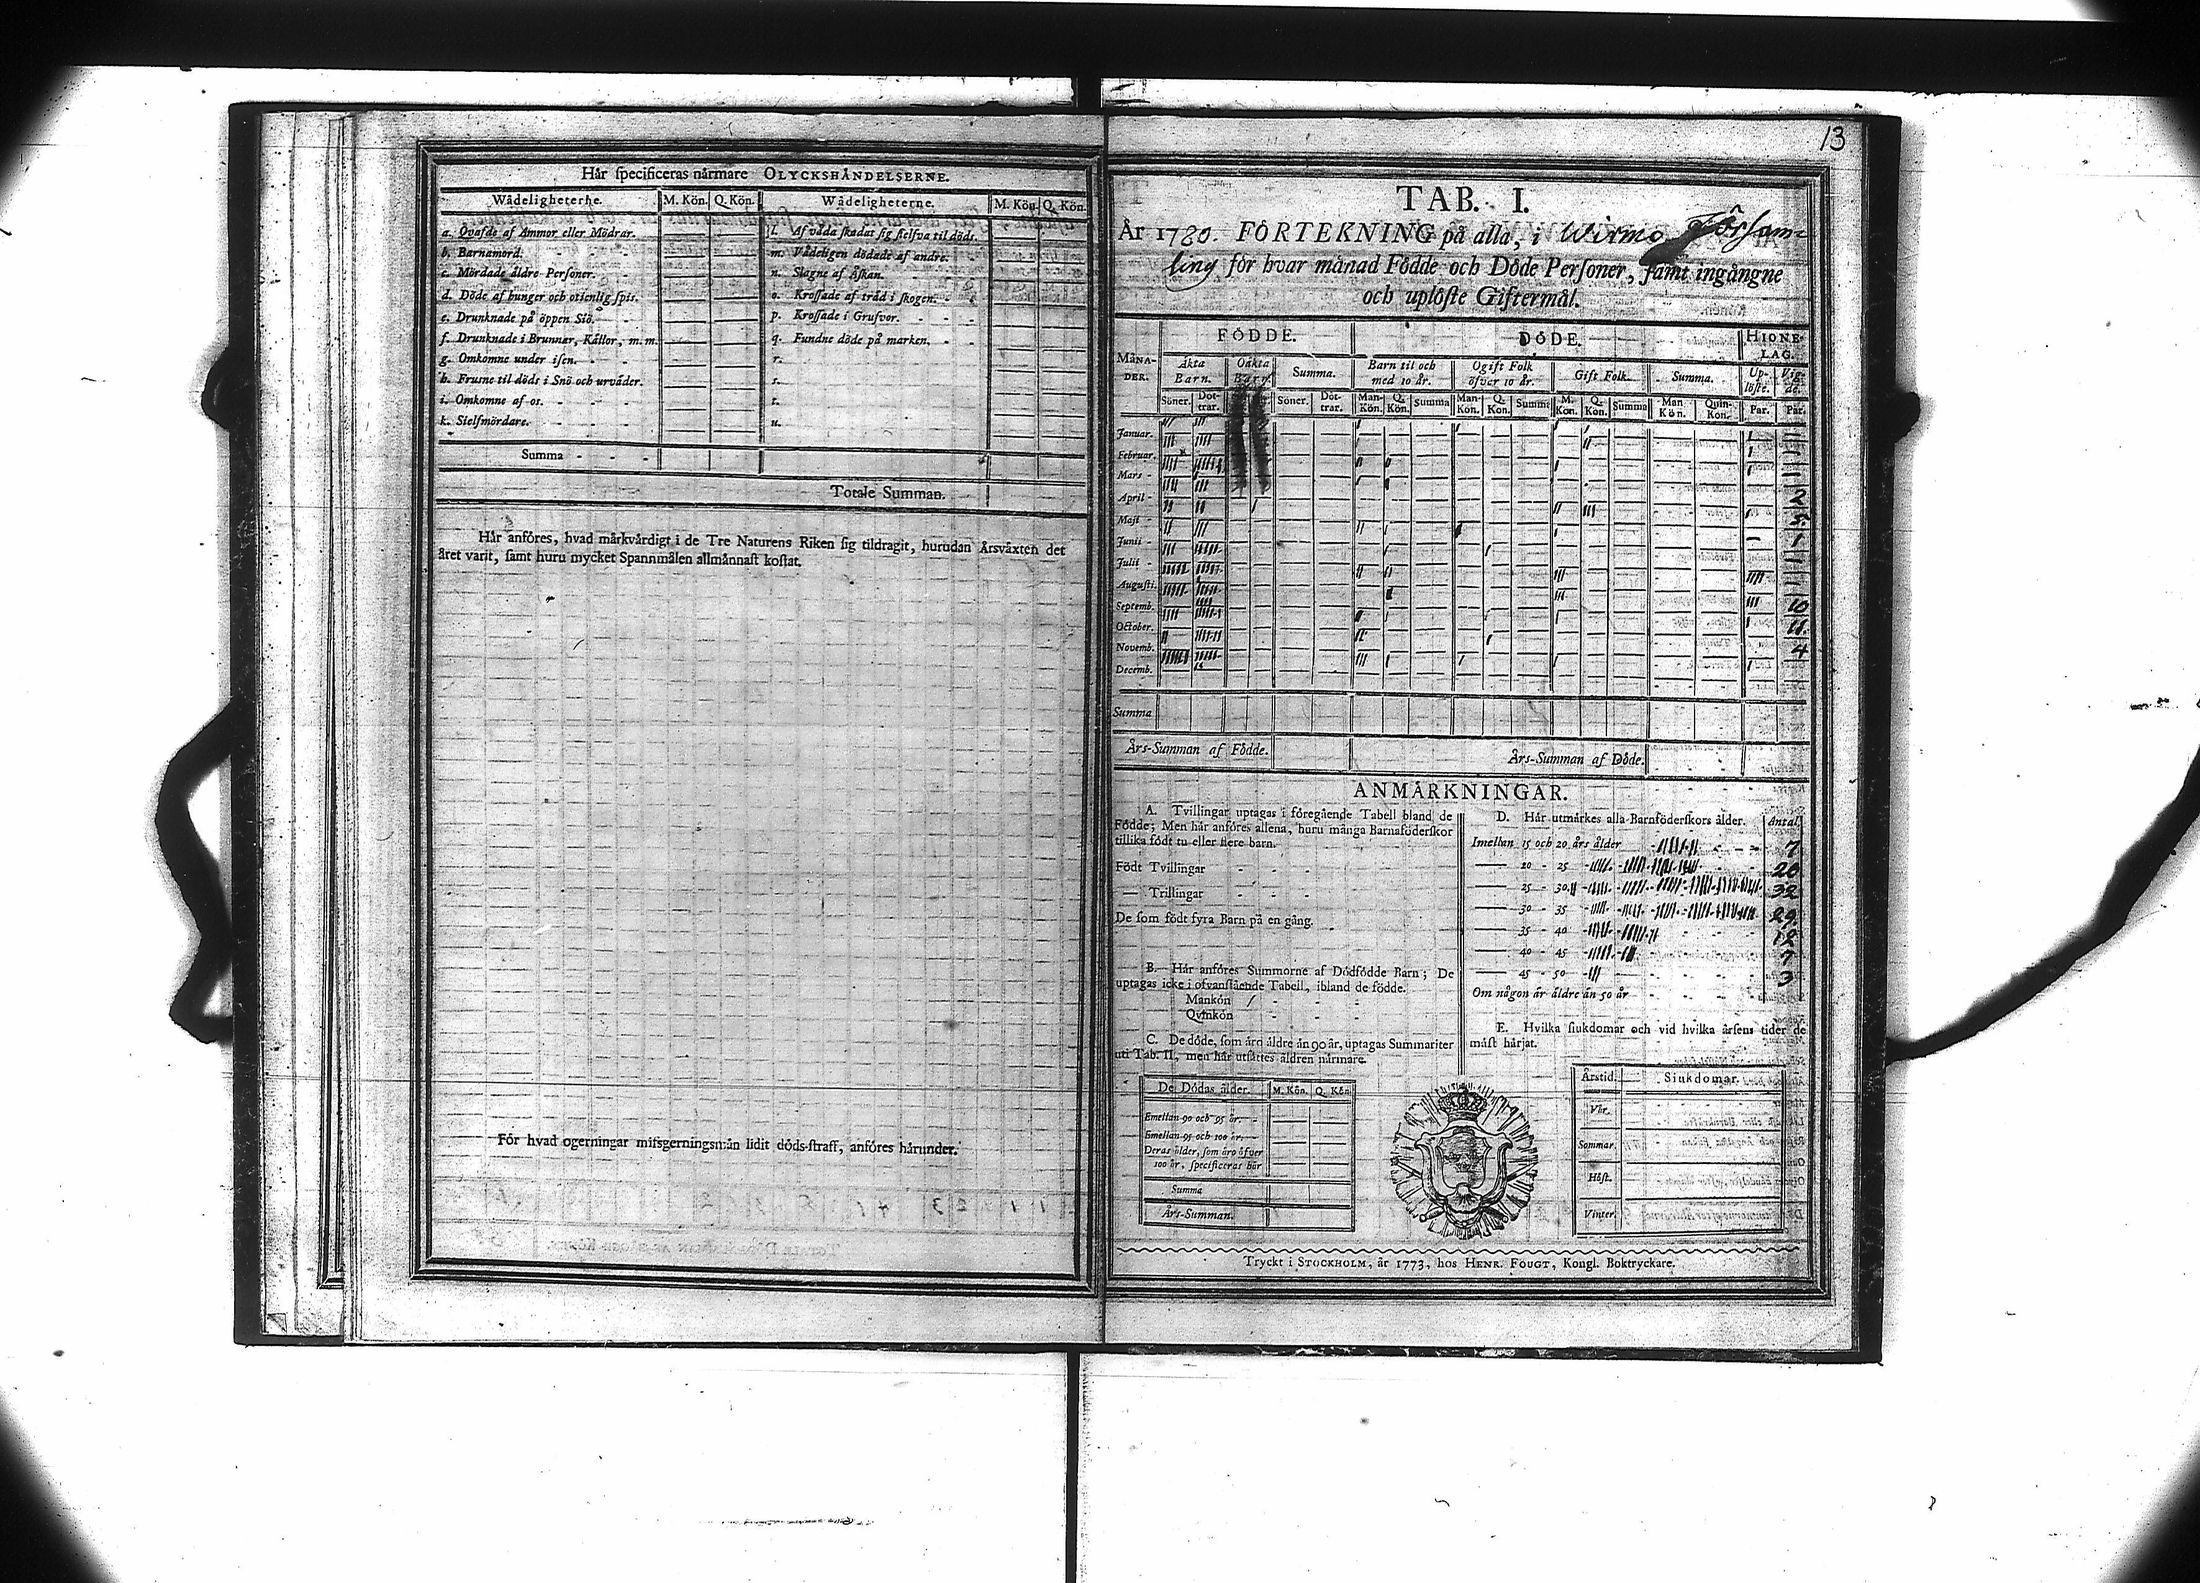 Hår ſpecificeras nårmare OLYCKSHÅNDELSERNE.
Wådeligheterne. M. Kön. Q. Kön. Wådeligheterne. M. Kön. Q. Kön.
a. Qvafde af Ammor eller Mödrar.
b. Barnamord.
c. Mördade åldre Perſoner.
d. Döde af hunger och otienlig ſpis.
e. Drunknade på öppen Siö.
f. Drunknade i Brunnar, Kållor, m. m.
g. Omkomne under iſen.
h. Fruſne til döds i Snö och urvåder.
i. Omkomne af os.
k. Sielfmördare.
l. Af våda ſkadat ſig ſielfva til döds.
m. Vådeligen dödade af andre.
n. Slagne af Åſkan.
o. Kroſſade af tråd i ſkogen.
p. Kroſſade i Grufvor.
q. Fundne döde på marken.
r.
s.
t.
u.
Summa
Totale Summan.
Hår anföres, hvad mårkvårdigt i de Tre Naturens Riken ſig tildragit, hurudan Årsvåxten det
året varit, ſamt huru mycket Spannmålen allmånnaſt koſtat.
För hvad ogerningar miſsgerningsmån lidit döds-ſtraff, anföres hårunder.
13
TAB. I.
År 1780. FÖRTEKNING på alla, i Wirmo Församling
för hvar månad Födde och Döde Perſoner, ſamt ingångne
och uplöſte Giftermål.
MÅNADER. FÖDDE. DÖDE. HIONELAG.
Åkta Barn. Oåkta Barn. Summa. Barn til och med 10 år. Ogift Folk öfver 10 år. Gift Folk. Summa. Uplöſte. Vigde.
Söner. Döttrar. Söner. Döttrar. Mankön. Q. Kön. Summa Mankön. Q. Kön. Summa M. Kön. Q. Kön. Summa Mankön. Quinkön. Par. Par.
Januar.
Februar.
Mars
April 2
Maji
Junii
Julii
Auguſti.
Septemb. 10
October. 11.
Novemb. 4
Decemb.
Summa
Års-Summan af Födde. Års-Summan af Döde.
ANMÅRKNINGAR.
A. Tvillingar uptagas i föregående Tabell bland de
Födde; Men hår anföres allena, huru många Barnaföderſkor
tillika födt tu eller flere barn.
Födt Tvillingar
— Trillingar
De ſom födt fyra Barn på en gång.
B. Hår anföres Summorne af Dödfödde Barn; De
uptagas icke i ofvanſtående Tabell, ibland de födde.
Mankön /
Qvinkön
C. De döde, ſom åro åldre ån 90 år, uptagas Summariter
uti Tab. II., men hår utſåttes åldren nårmare.
De Dödas ålder. M. Kön. Q. Kön
Emellan 90 och 95 år.
Emellan 95 och 100 år.
Deras ålder, ſom åro öfver
100 år, ſpecificeras hår
Summa
Års-Summan.
D. Hår utmårkes alla Barnföderſkors ålder. Antal
Imellan 15 och 20 års ålder 7
20 - 25 20
25 - 30 32
30 - 35 29
35 - 40 12
40 - 45 7
45 - 50 3
Om någon år åldre ån 50 år
E. Hvilka ſiukdomar och vid hvilka årſens tider de
måſt hårjat.
Årstid. Siukdomar.
Vår.
Sommar.
Höſt.
Vinter.
Tryckt i STOCKHOLM, år 1773, hos HENR. FOUGT, Kongl. Boktryckare.